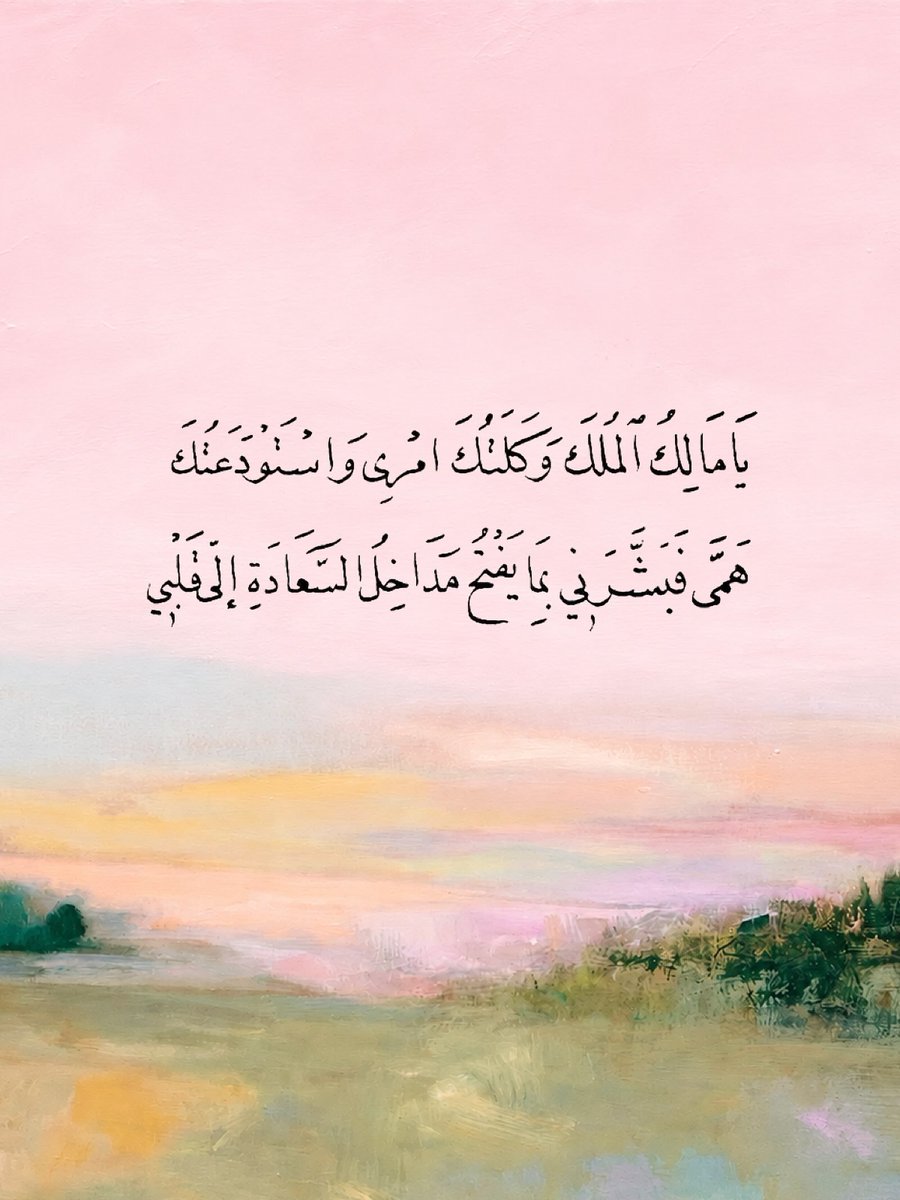 يَا مَالِكُ ٱلمُلَكَ وَكَلَتُكَ امْرِى وَاسْتَوْدَعَتُكَ
هَمَّى فَبَشَّرَنِي بِمَا يَفْتَحُ مَدَاخِلُ السَّعَادَةِ إلَى قَلْبِي